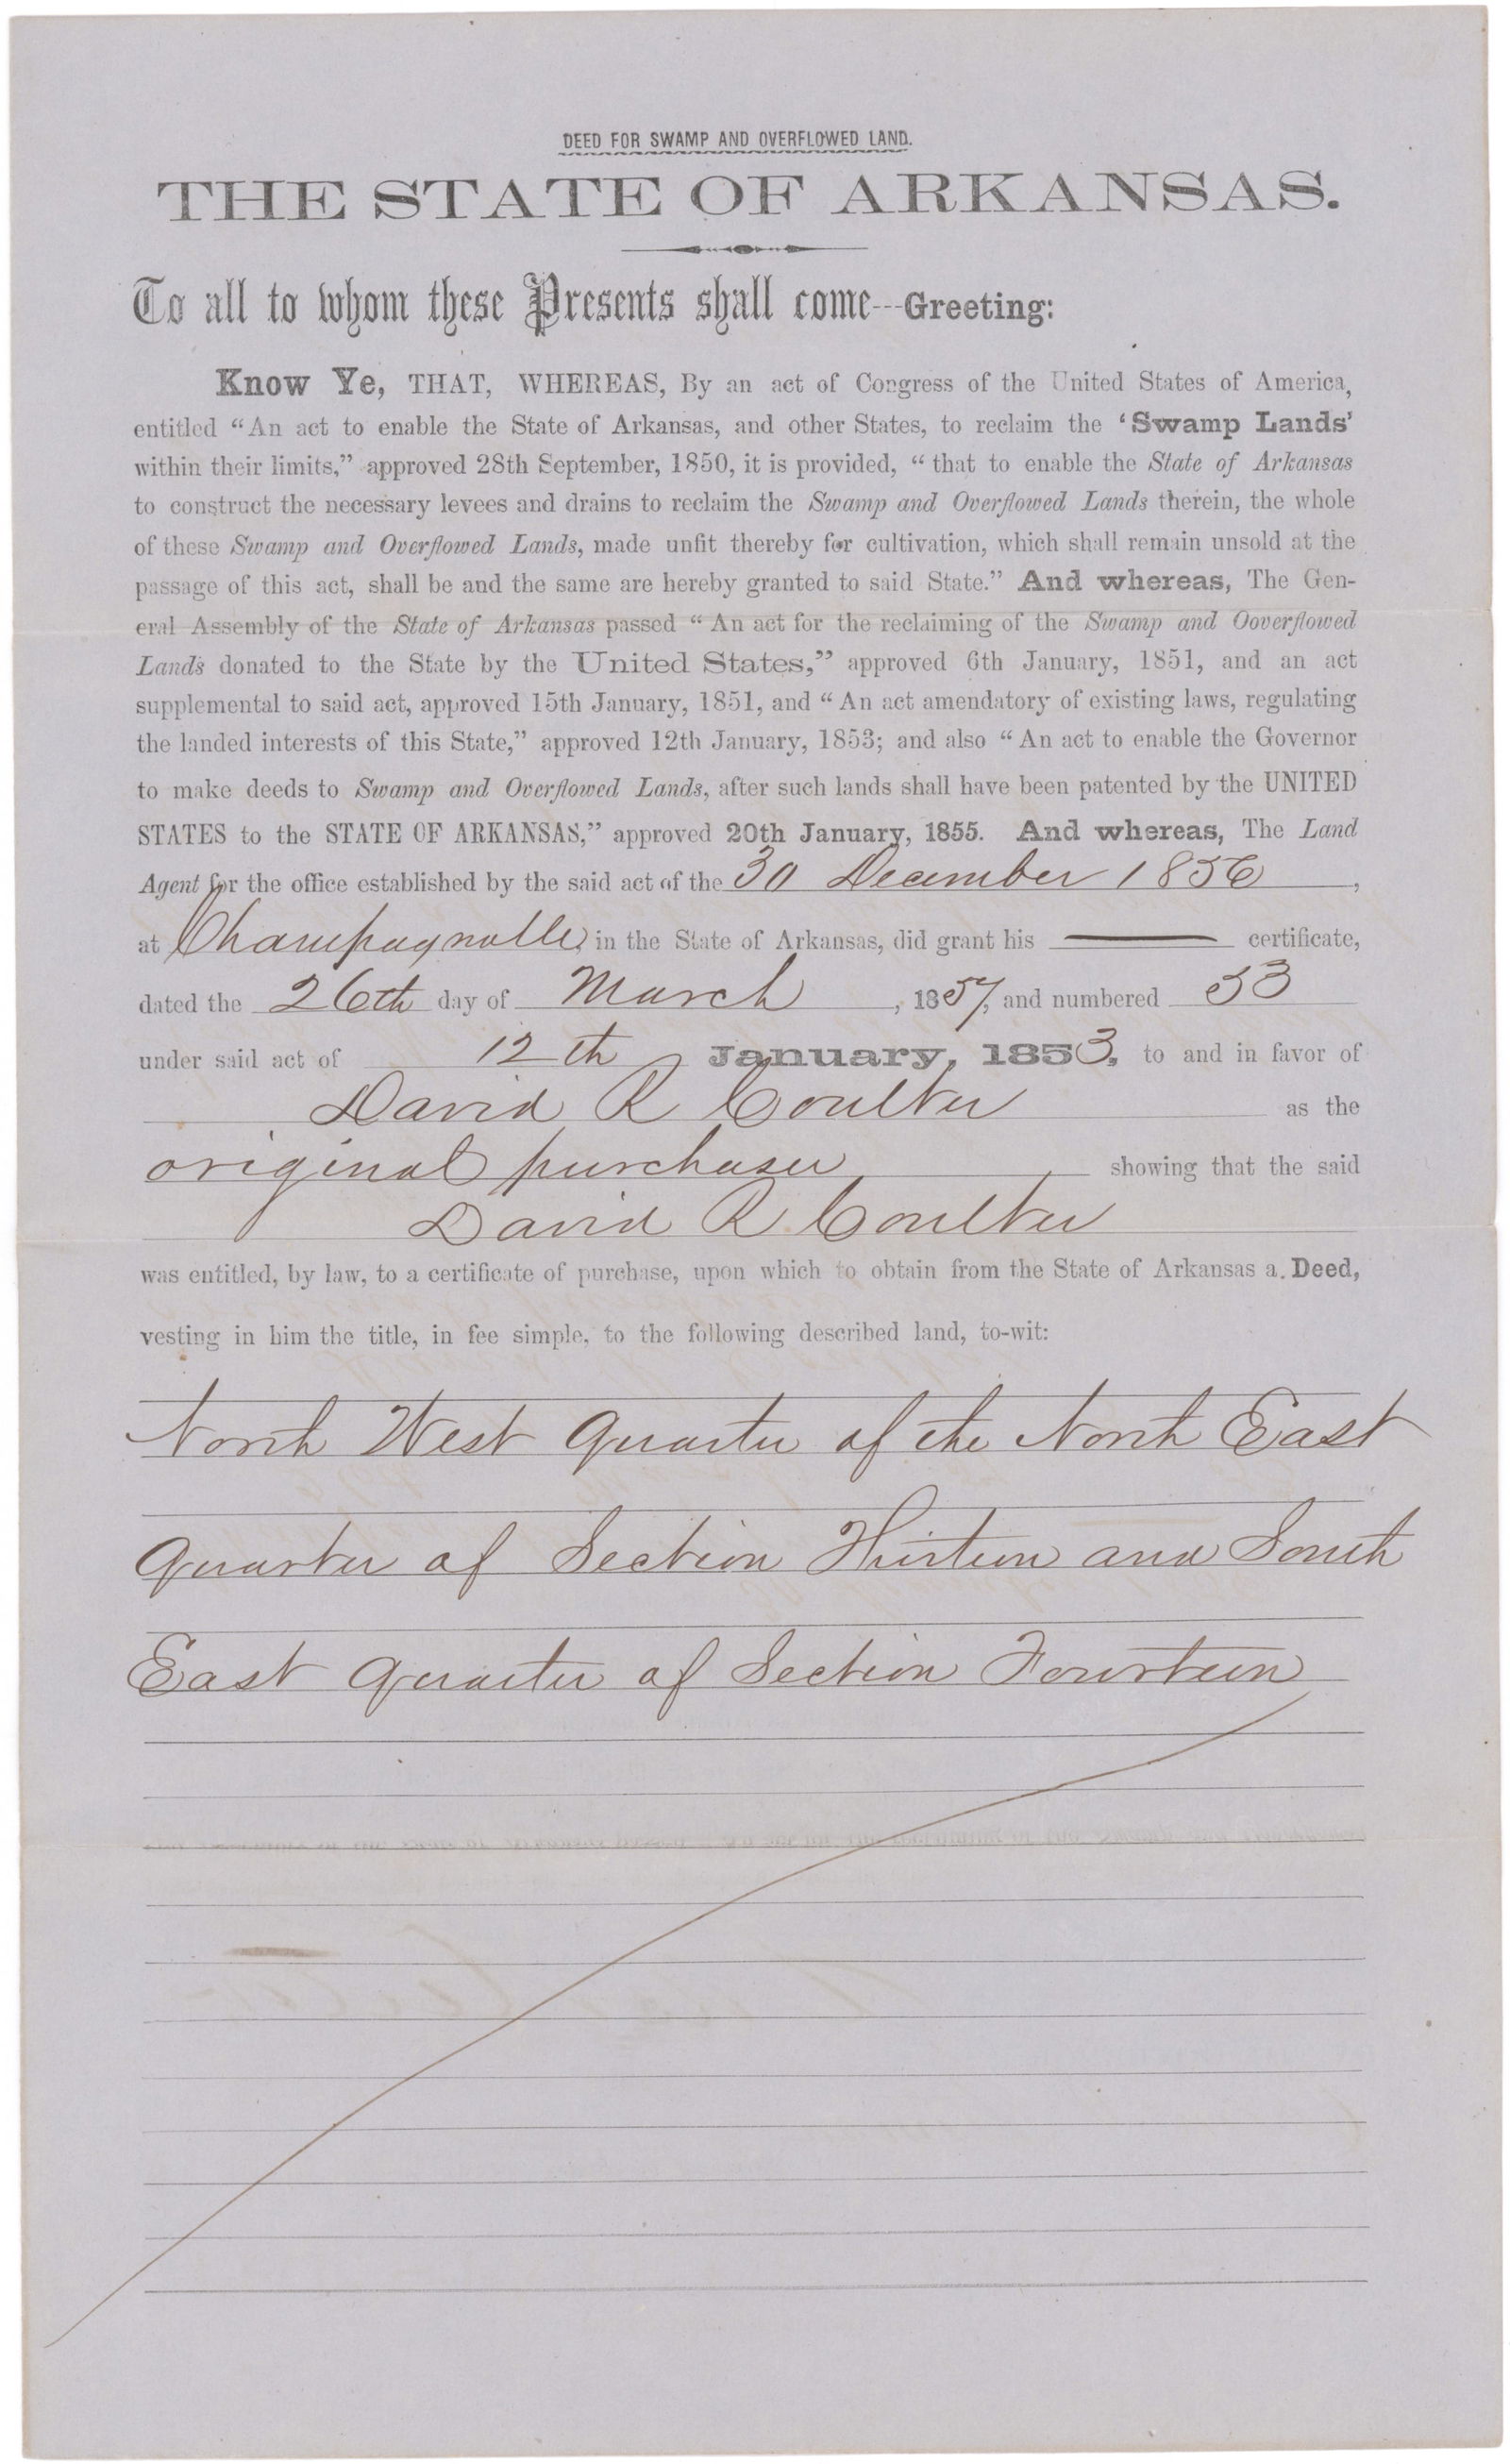 DEED FOR SWAMP AND OVERFLOWED LAND.
THE STATE OF ARKANSAS.
To all to whom these Presents shall come---Greeting:
Know Ye, THAT, WHEREAS, By an act of Congress of the United States of America,
entitled “An act to enable the State of Arkansas, and other States, to reclaim the ‘Swamp Lands’
within their limits,” approved 28th September, 1850, it is provided, “that to enable the State of Arkansas
to construct the necessary levees and drains to reclaim the Swamp and Overflowed Lands therein, the whole
of these Swamp and Overflowed Lands, made unfit thereby for cultivation, which shall remain unsold at the
passage of this act, shall be and the same are hereby granted to said State.” And whereas, The Gen-
eral Assembly of the State of Arkansas passed “An act for the reclaiming of the Swamp and Ooverflowed
Lands donated to the State by the United States,” approved 6th January, 1851, and an act
supplemental to said act, approved 15th January, 1851, and “An act amendatory of existing laws, regulating
the landed interests of this State,” approved 12th January, 1853; and also “An act to enable the Governor
to make deeds to Swamp and Overflowed Lands, after such lands shall have been patented by the UNITED
STATES to the STATE OF ARKANSAS,” approved 20th January, 1855. And whereas, The Land
Agent for the office established by the said act of the 30 December 1856,
at Champagnolle, in the State of Arkansas, did grant his —— certificate,
dated the 26th day of March, 1857, and numbered 33
under said act of 12th January, 1853, to and in favor of
David R Coulter as the
original purchaser showing that the said
David R Coulter
was entitled, by law, to a certificate of purchase, upon which to obtain from the State of Arkansas a. Deed,
vesting in him the title, in fee simple, to the following described land, to-wit:
North West Quarter of the North East
Quarter of Section Thirteen and South
East Quarter of Section Fourteen